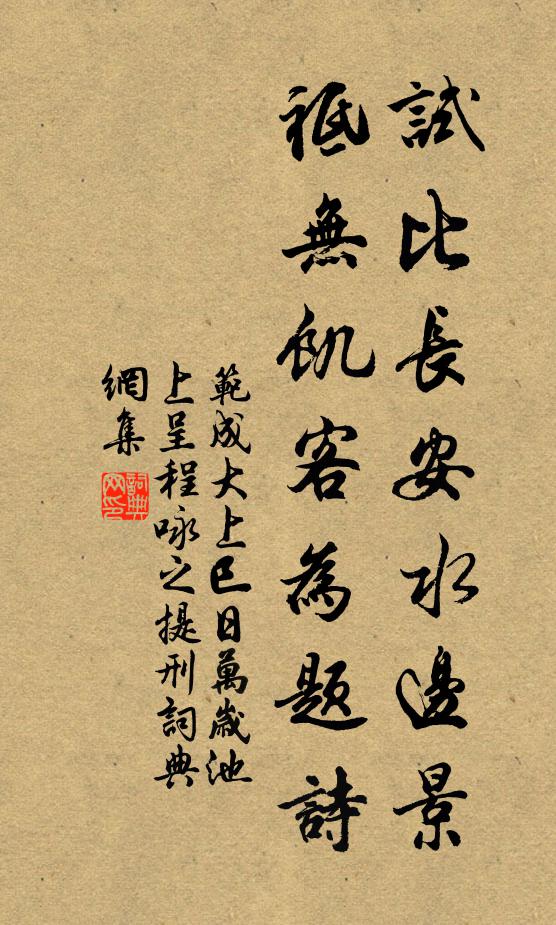 試比長安水邊景
祗無飢客為題詩
範成大上巳日萬歲池
上呈程咏之提刑詞典
網集
詞典
网印